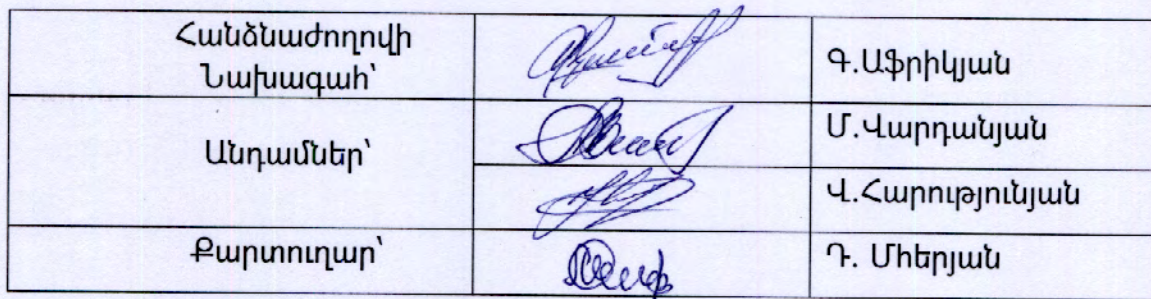 Հանձնաժողովի
Նախագահ՝
Գ.Աֆրիկյան
Անդամներ՝
Մ.Վարդանյան
Վ.Հարությունյան
Քարտուղար՝
Դ. Մհերյան